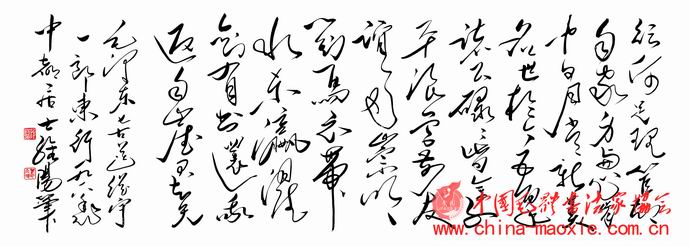 纭何足理管却
自家身与心胸
中日月常新美
名世于今五百年
诸公碌碌皆余子
平浪宫前友
谊多崇明
对马衣带
水东瀛濯
剑有书还我
返自崖君去矣
毛泽东七古送纵宇
一郎东行
中都居士
中国毛体书法家协会
www.china-maoxie.com.cn